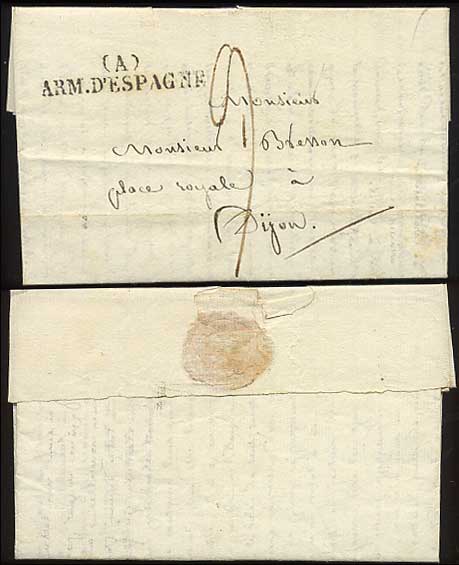 (A)
ARM. D'ESPAGNE
9
Monsieur
Monsieur Bresson
place royale à
Dijon.